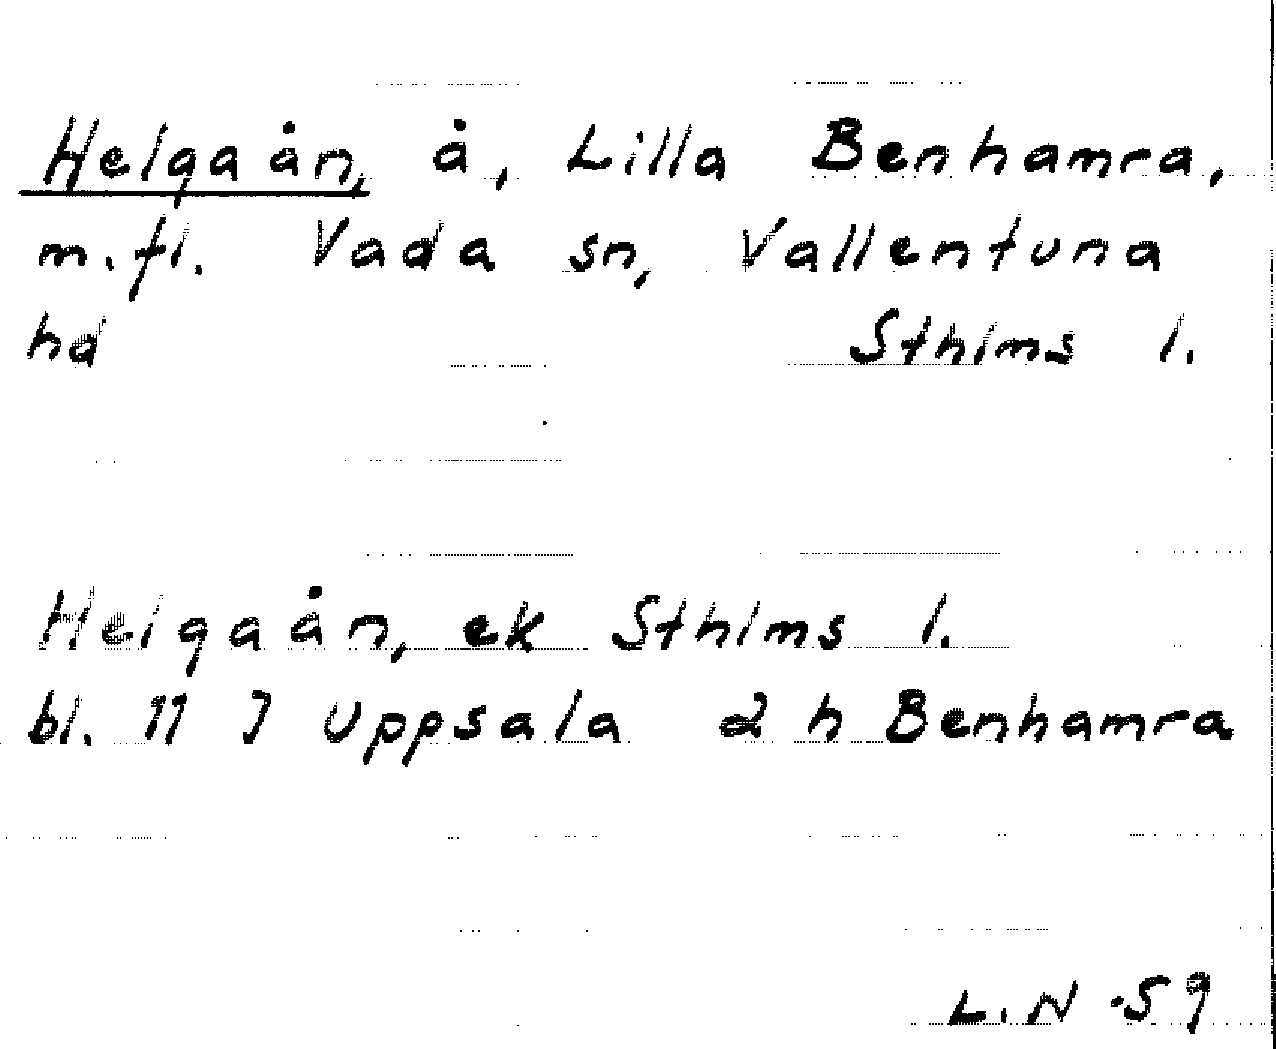 Helgaån, å, Lilla Benhamra,
m.fl. Vada sn, Vallentuna
hd Sthlms l.
Helgaån, ek Sthlms l.
bl. 11 J Uppsala 2 h Benhamra
L.N -59